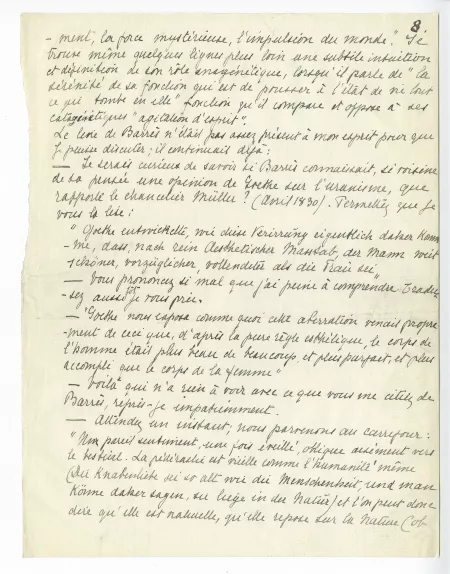 8
- ment, la force mystérieuse, l'impulsion du monde." Je
trouve même quelques lignes plus loin une subtile intuition
et définition de son rôle anagénétique, lorsqu'il parle de "la
sérénité de sa fonction qui est de pousser à l'état de vie tout
ce qui tombe en elle" fonction qu'il compare et oppose à nos
catagénétiques "agitation d'esprit".
Le livre de Barrès n'était pas assez présent à mon esprit pour que
je pusse discuter; il continuait déjà:
— Je serais curieux de savoir si Barrès connaissait, si voisine
de sa pensée une opinion de Goethe sur l'uranisme, que
rapporte le chancelier Müller? (Avril 1830). Permettez que je
vous la lise:
" Goethe entwickelte, wie diese Verirrung eigentlich daher kom
- me, dass, nach rein Aesthetischer Masstab, der Mann weit
schöner, vorzüglicher, vollendeter als die Frau sei„
— Vous prononcez si mal que j'ai peine à comprendre Tradui-
- sez aussitôt je vous prie.
— "Goethe nous exposa comme quoi cette aberration venait propre
-ment de ceci que, d'après la pure règle esthétique, le corps de
l'homme était plus beau de beaucoup, et plus parfait, et plus
accompli que le corps de la femme"
— Voilà qui n'a rien à voir avec ce que vous me citiez de
Barrès, repris-je impatiemment.
— Attendez un instant, nous parvenons au carrefour:
"Un pareil sentiment, une fois éveillé, oblique aisément vers
le bestial. La pédérastie est vieille comme l'humanité même
(Die Knabenliebe sei so alt wie die Menschenheit, und man
könne daher sagen, sie liege in der Natur) et l'on peut donc
dire qu'elle est naturelle, qu'elle repose sur la Nature (ob